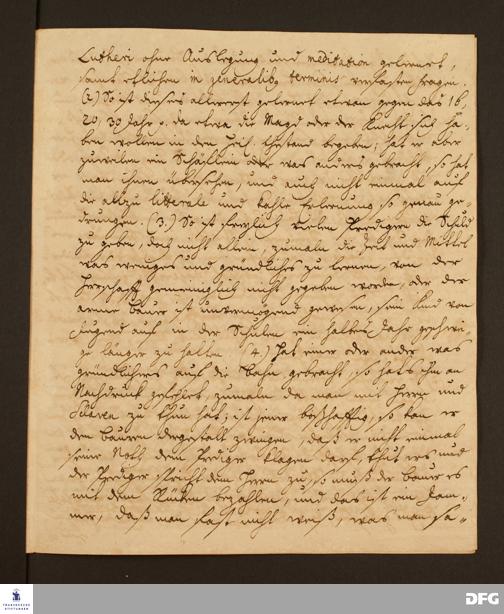 Lutheri ohne Auslegung und meditation gelernet,
samt etlichen in generalibus terminis verfasten fragen.
(2.) So ist dieses allererst gelernet etwan gegen das 16,
20, 30 Jahr, da etwa die Magd oder der Knecht sich ha-
ben wollen in den heil. Ehestand begeben; hat er aber
zuweilen ein Schäflein oder was anders gebracht, so hat
man ihnen übersehen, und auch nicht einmal auf
die allzu litterale und kahle Erlernung so genau ge-
drungen. (3.) So ist freylich vielen Predigern die Schuld
zu geben, doch nicht allein, zumaln die Zeit und Mittel
was weniges und gründliches zu lernen, von der
Herrschafft gemeiniglich nicht gegeben worden, oder der
arme Bauer ist unvermögend gewesen, sein Kind von
Jugend auf in der Schulen ein halbes Jahr geschwei-
ge länger zu halten. (4.) Hat einer oder ander was
gründlichers auf die Bahn gebracht, so hats ihm an
Nachdruck gefehlet, zumaln da man mit Herrn und
Sclaven zu thun hat; ist jener boßhafftig, so kan er
den bauren dergestalt zwingen, daß er nicht einmal
seine Noth dem Prediger klagen darf, thut ers und
der Prediger spricht dem Herrn zu, so muß der bauer es
mit dem Rücken bezahlen, und das ist ein Jam-
mer, daß man fast nicht weiß, was man sa-
FRANCKESCHE
STIFTUNGEN
DFG